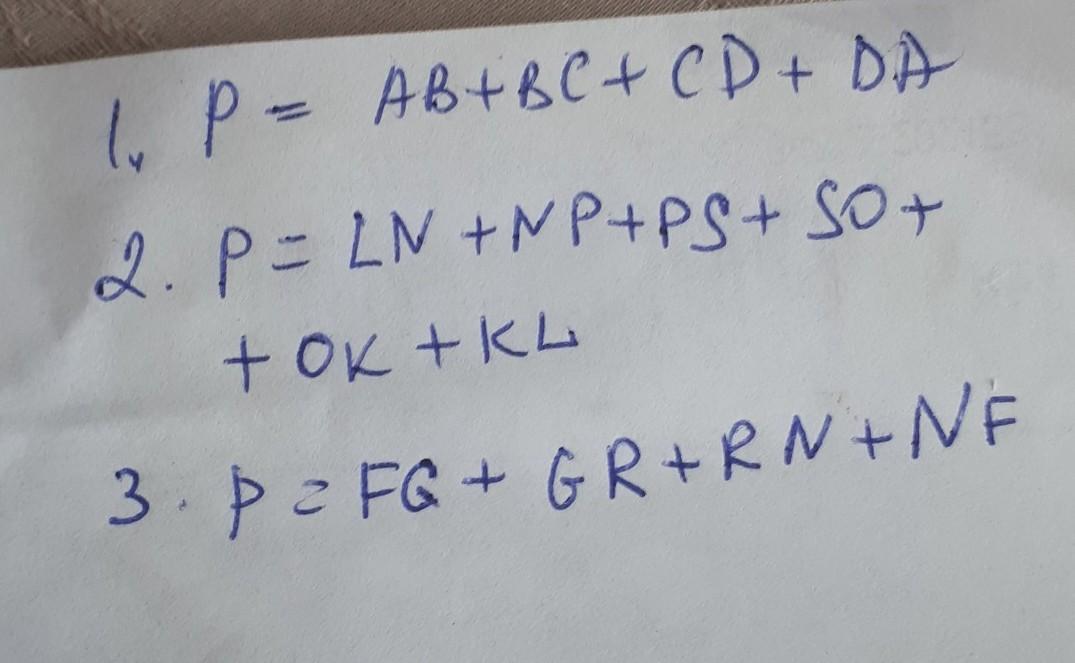 1. P = AB+BC+CD+DA
2. P = LN+NP+PS+SO+
+OK+KL
3. P = FG+GR+RN+NF